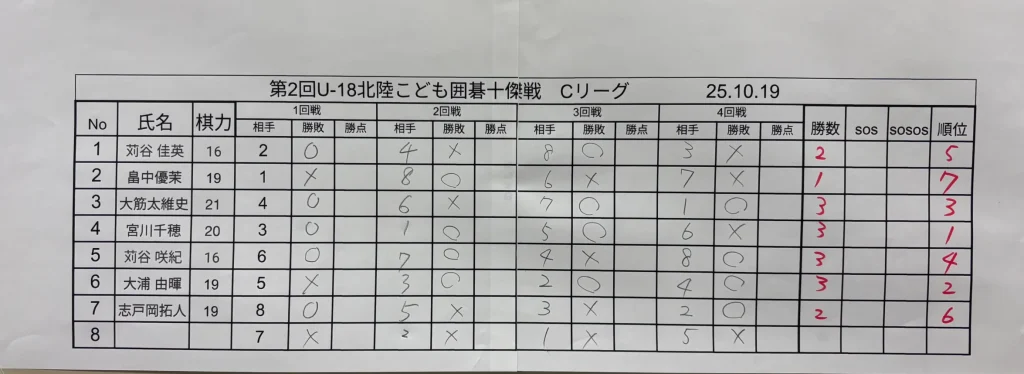 第2回U-18北陸こども囲碁十傑戦 Cリーグ 25.10.19
No 氏名 棋力 1回戦 2回戦 3回戦 4回戦 勝数 sos sosos 順位
相手 勝敗 勝点 相手 勝敗 勝点 相手 勝敗 勝点 相手 勝敗 勝点
1 苅谷 佳英 16 2 ○ 4 × 8 ○ 3 × 2 5
2 畠中優茉 19 1 × 8 ○ 6 × 7 × 1 7
3 大筋太維史 21 4 ○ 6 × 7 ○ 1 ○ 3 3
4 宮川千穂 20 3 ○ 1 ○ 5 ○ 6 × 3 1
5 苅谷 咲紀 16 6 ○ 7 ○ 4 × 8 ○ 3 4
6 大浦 由暉 19 5 × 3 ○ 2 ○ 4 ○ 3 2
7 志戸岡拓人 19 8 ○ 5 × 3 × 2 ○ 2 6
8 7 × 2 × 1 × 5 ×